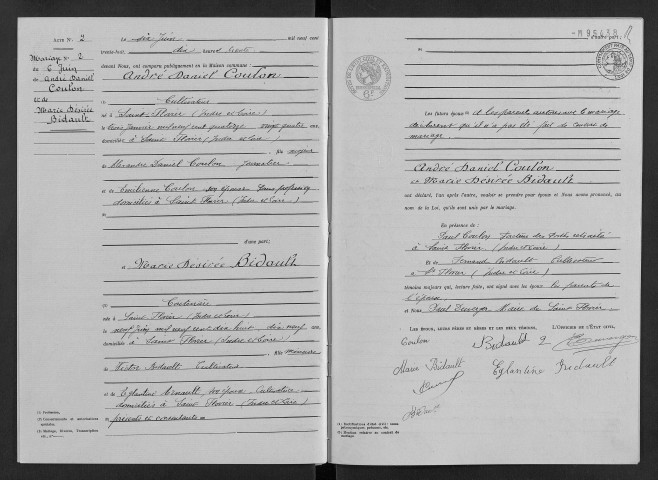 ACTE N° 2
Mariage N° 2
de 6 Juin
de André Daniel
Coulon
et de
Marie Désirée
Bidault
Le six Juin mil neuf cent
trente-huit, dix heures trente
devant Nous, ont comparu publiquement en la Maison commune :
André Daniel Coulon
Cultivateur
né à Saint Flovier (Indre et Loire)
le trois janvier mil neuf cent quatorze vingt quatre ans,
domicilié à Saint Flovier (Indre et Loire)
fils majeur
de Alexandre Daniel Coulon journalier
et Coulon son épouse sans profession
domiciliés à Saint Flovier (Indre et Loire)
d'une part ;
et Marie Désirée Bidault
Couturière
née à Saint Flovier (Indre et Loire)
le neuf mil neuf cent dix huit, dix neuf ans,
domiciliée à Saint Flovier (Indre et Loire)
fille mineure
de Victor Bidault Cultivateur
et Eglantine Arnault, son épouse Cultivatrice
domiciliés à Saint Flovier (Indre et Loire)
présents et consentants
(1) Profession.
d'autre part ;
Les futurs époux et les parents autorisant le mariage
déclarent qu'il n'a pas été fait de contrat de
mariage.
André Daniel Coulon
et Marie Désirée Bidault
ont déclaré, l'un après l'autre, vouloir se prendre pour époux et Nous avons prononcé, au
nom de la Loi, qu'ils sont unis par le mariage.
En présence de :
Paul Coulon Facteur des Postes retraité
à Saint Flovier (Indre et Loire)
et Fernand Bidault Cultivateur
à St Flovier (Indre et Loire)
témoins majeurs qui, lecture faite, ont signé avec les époux les parents de
l'épouse
et Nous Maire de Saint Flovier.
LES ÉPOUX, LEURS PÈRES ET MÈRES ET LES DEUX TÉMOINS, L'OFFICIER DE L'ÉTAT CIVIL,
Coulon Bidault
Marie Bidault Eglantine Bidault